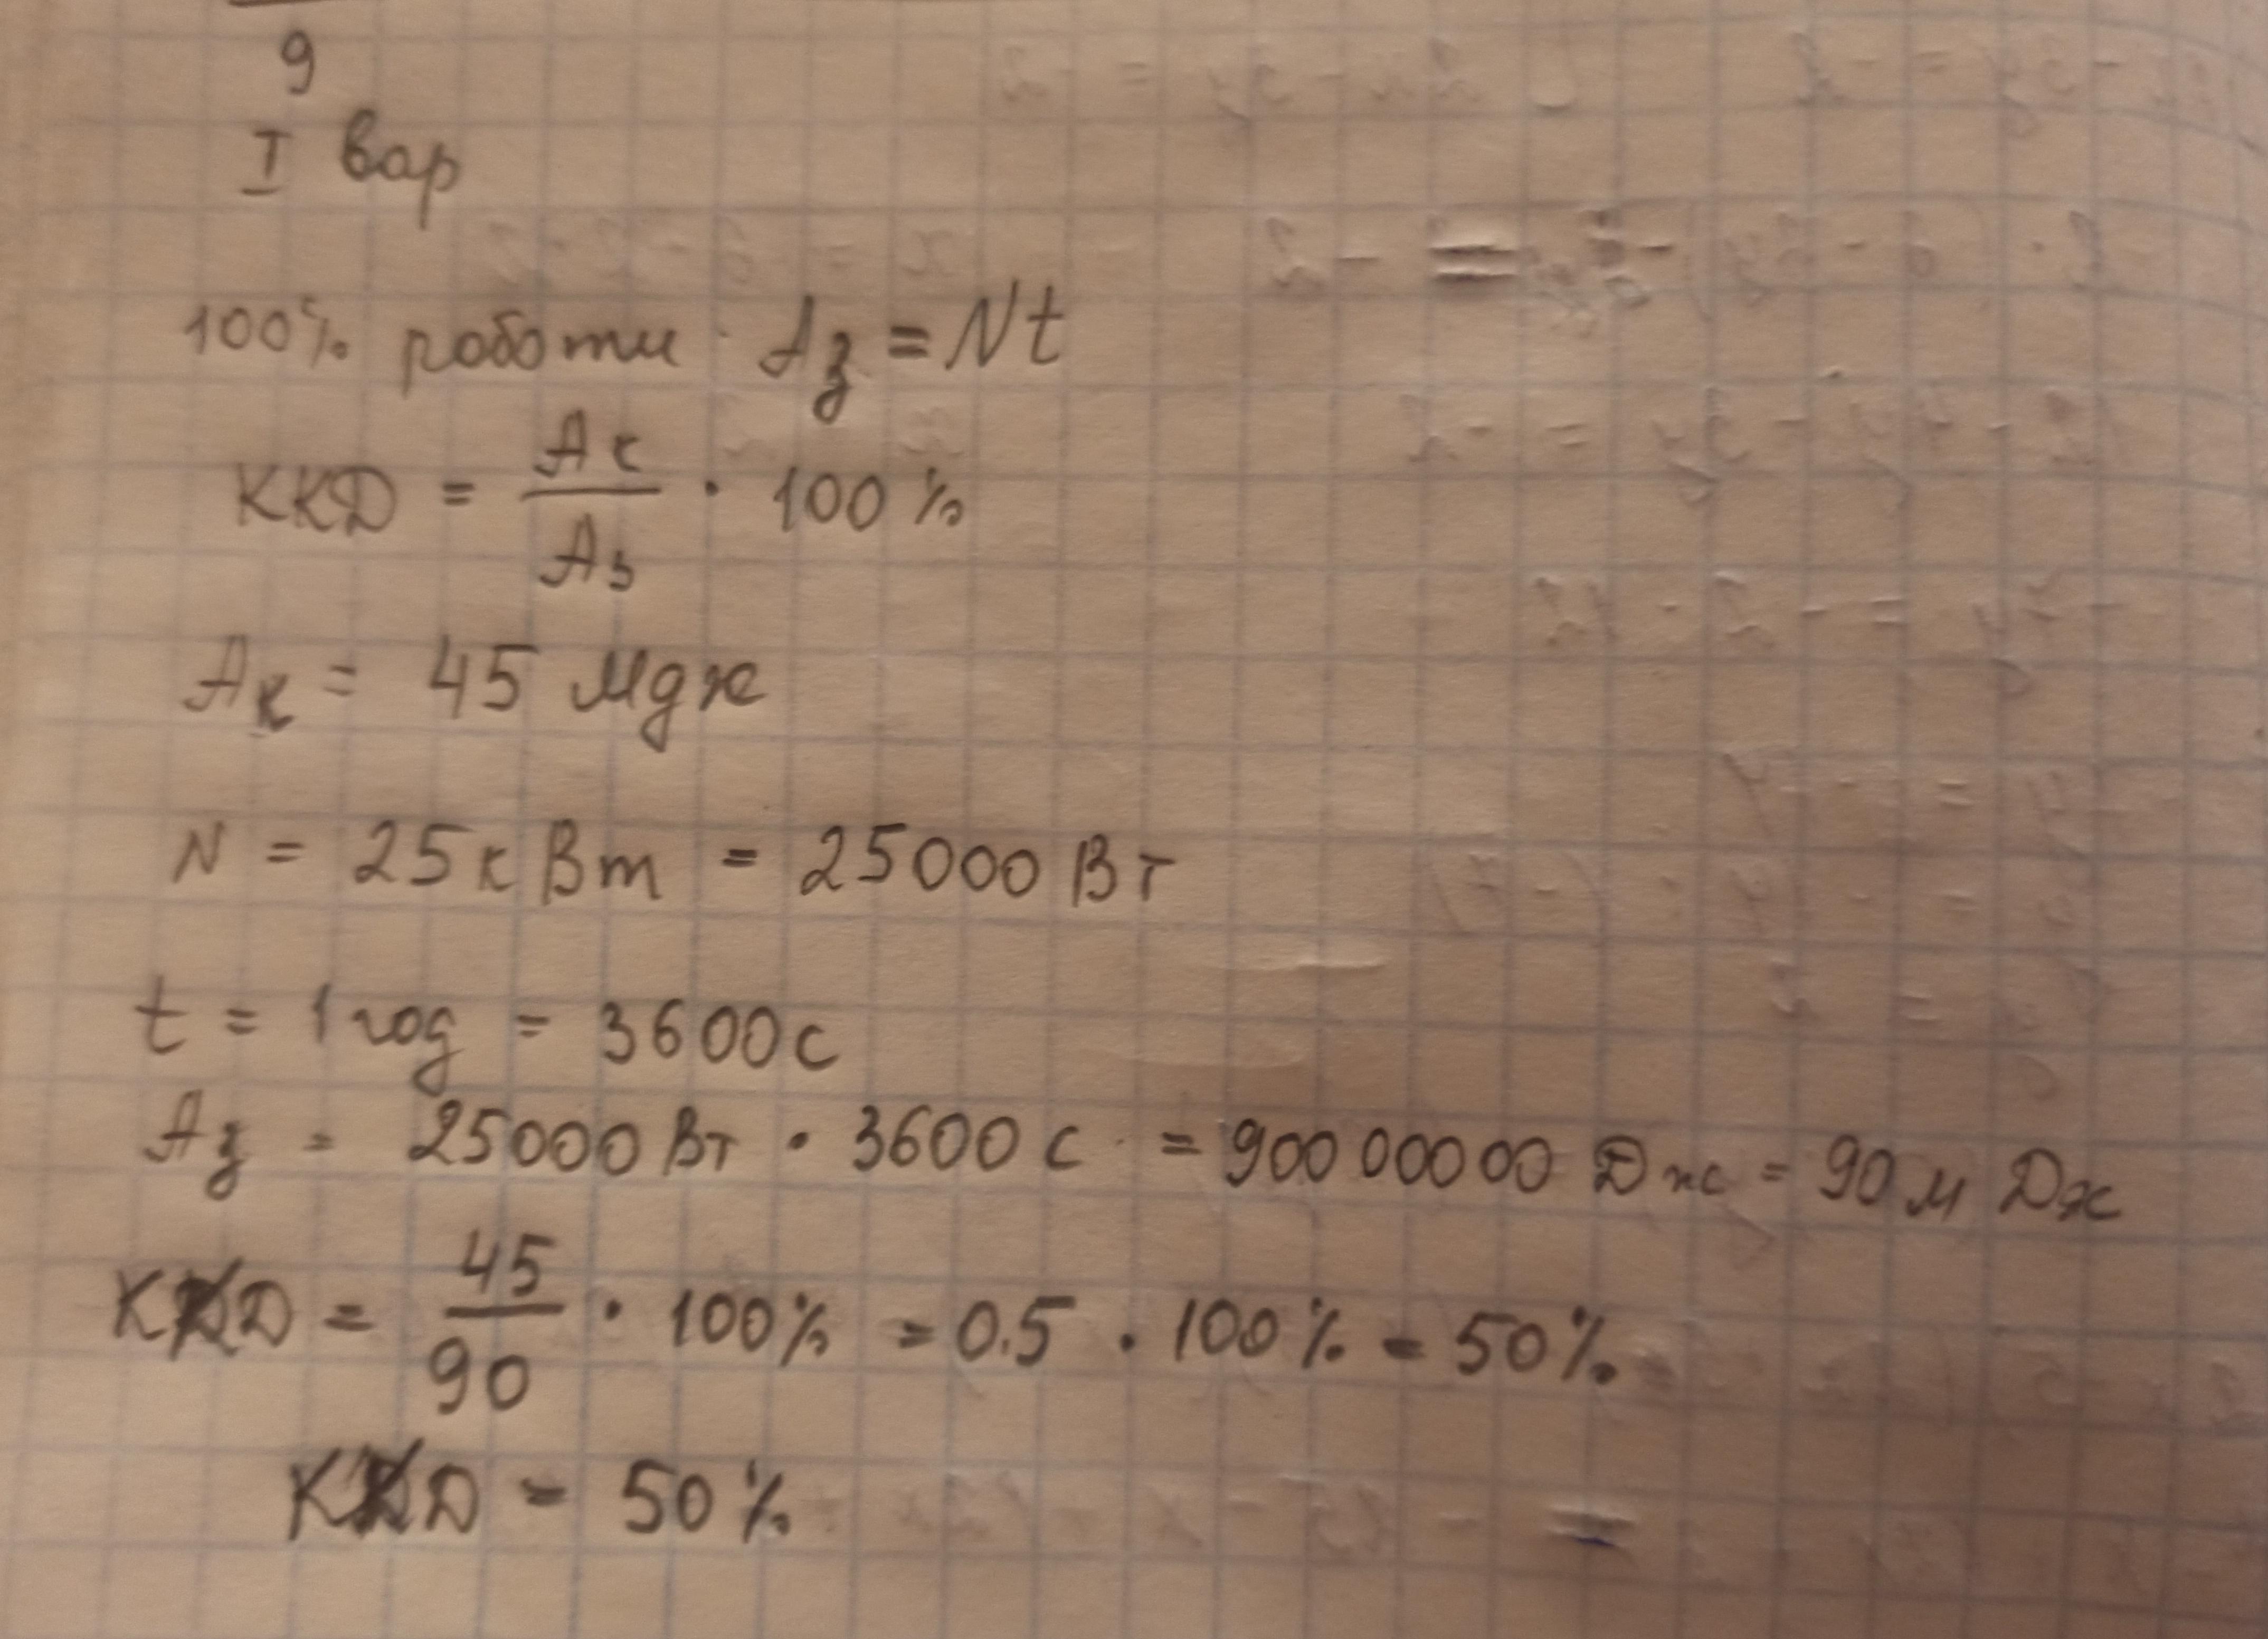 9
I вар
100% роботи Aз = Nt
ККD = Aк / Aз · 100%
Aк = 45 Мдж
N = 25 кВт = 25000 Вт
t = 1 год = 3600 с
Aз = 25000 Вт · 3600 с = 900 000 00 Дж = 90 м Дж
ККD = 45 / 90 · 100% = 0.5 · 100% = 50%
ККD = 50%